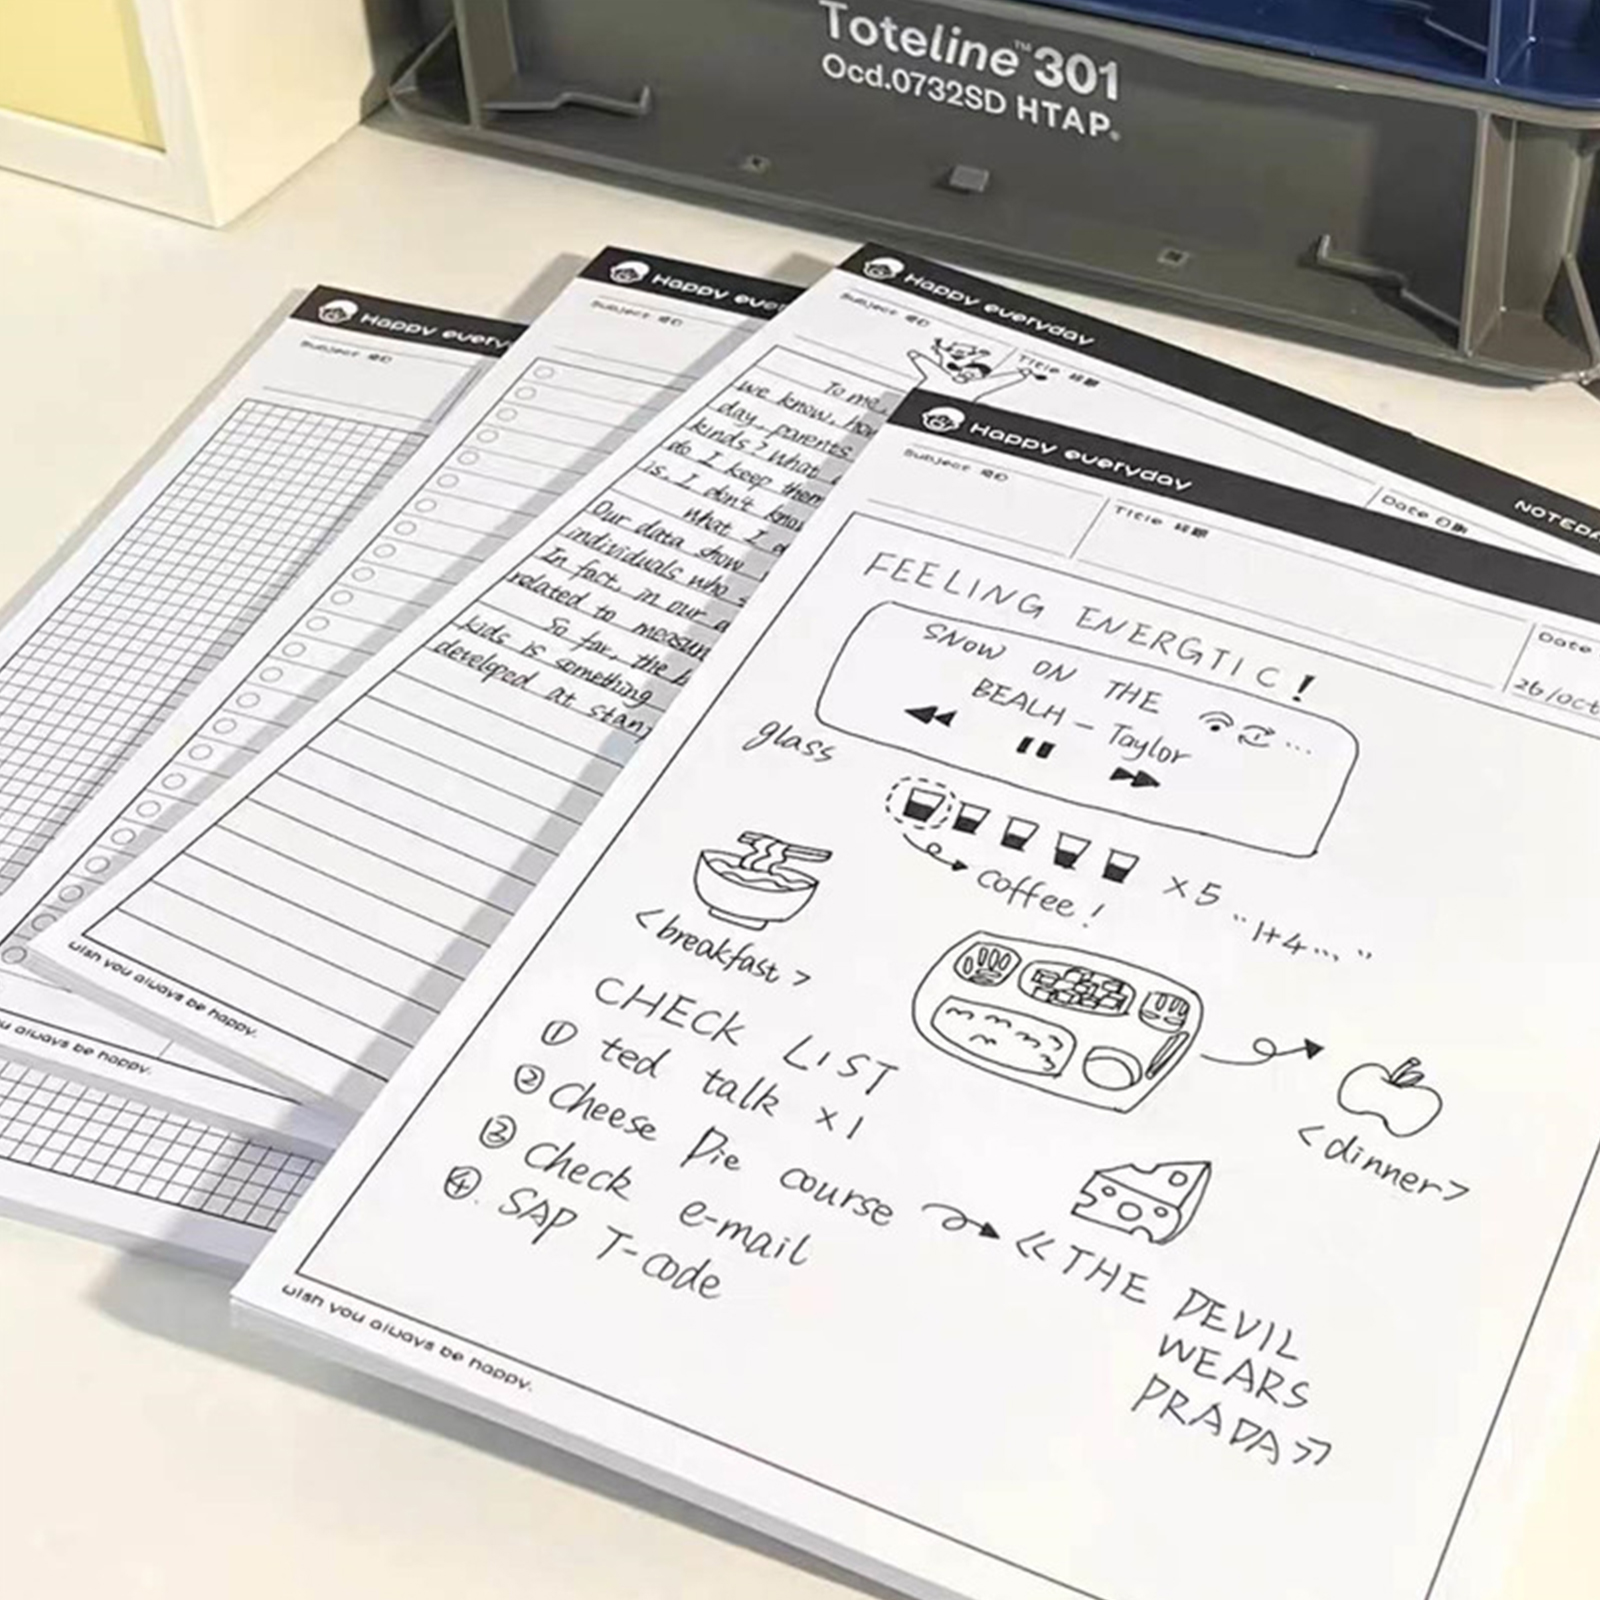 Toteline™ 301
Ocd.0732SD HTAP
Happy every
Subject
Happy ever
Subject
you always be happy.
Happy everyday
NOTEPA
Subject
Title 标题
Date 日期
To me,
we know, how
day, parents
kinds? What
do I keep them
is, I don't know
What I
Our data show
individuals who
In fact, in our
related to measur
So far, the
kids is something
developed at stan
wish you always be happy.
Happy everyday
Subject
Title 标题
Date
26/oct
FEELING ENERGTIC!
SNOW ON THE
BEALH - Taylor
glass
x5 "1+4..."
coffee!
<breakfast>
<dinner>
CHECK LIST
① ted talk x1
② Cheese Pie course
③ Check e-mail
④. SAP T-code
《THE DEVIL
WEARS
PRADA》
wish you always be happy.